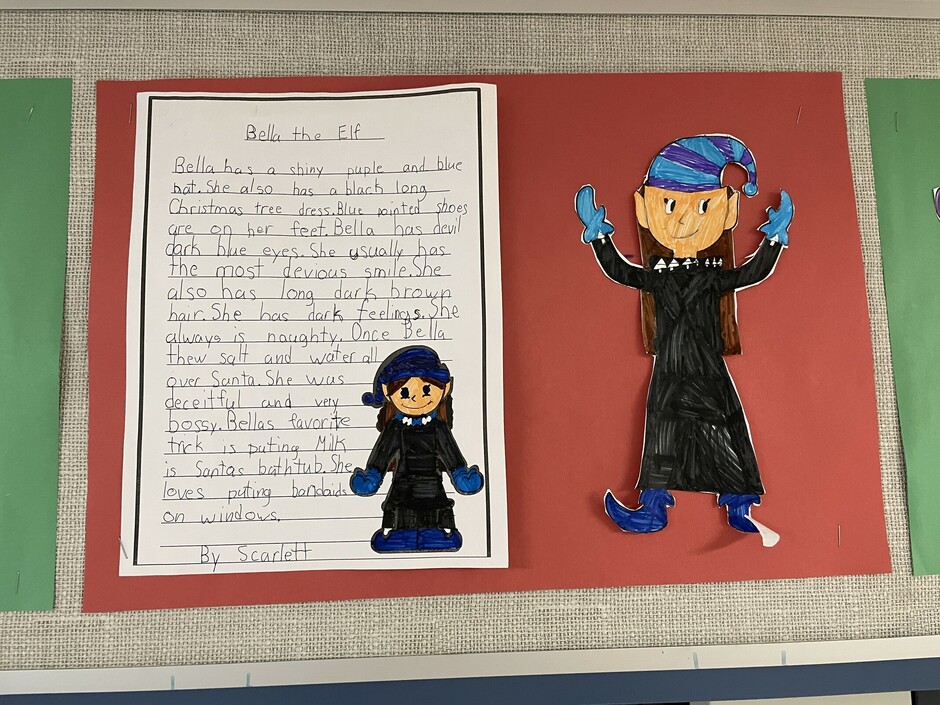 Bella the Elf
Bella has a shiny puple and blue
hat. She also has a black long
Christmas tree dress. Blue pointed shoes
are on her feet. Bella has devil
dark blue eyes. She usually has
the most devious smile. She
also has long dark brown
hair. She has dark feelings. She
always is naughty. Once Bella
thew salt and water all
over Santa. She was
deceitful and very
bossy. Bellas favorite
trick is puting Milk
is Santas bathtub. She
loves puting bandaids
on windows.
By Scarlett